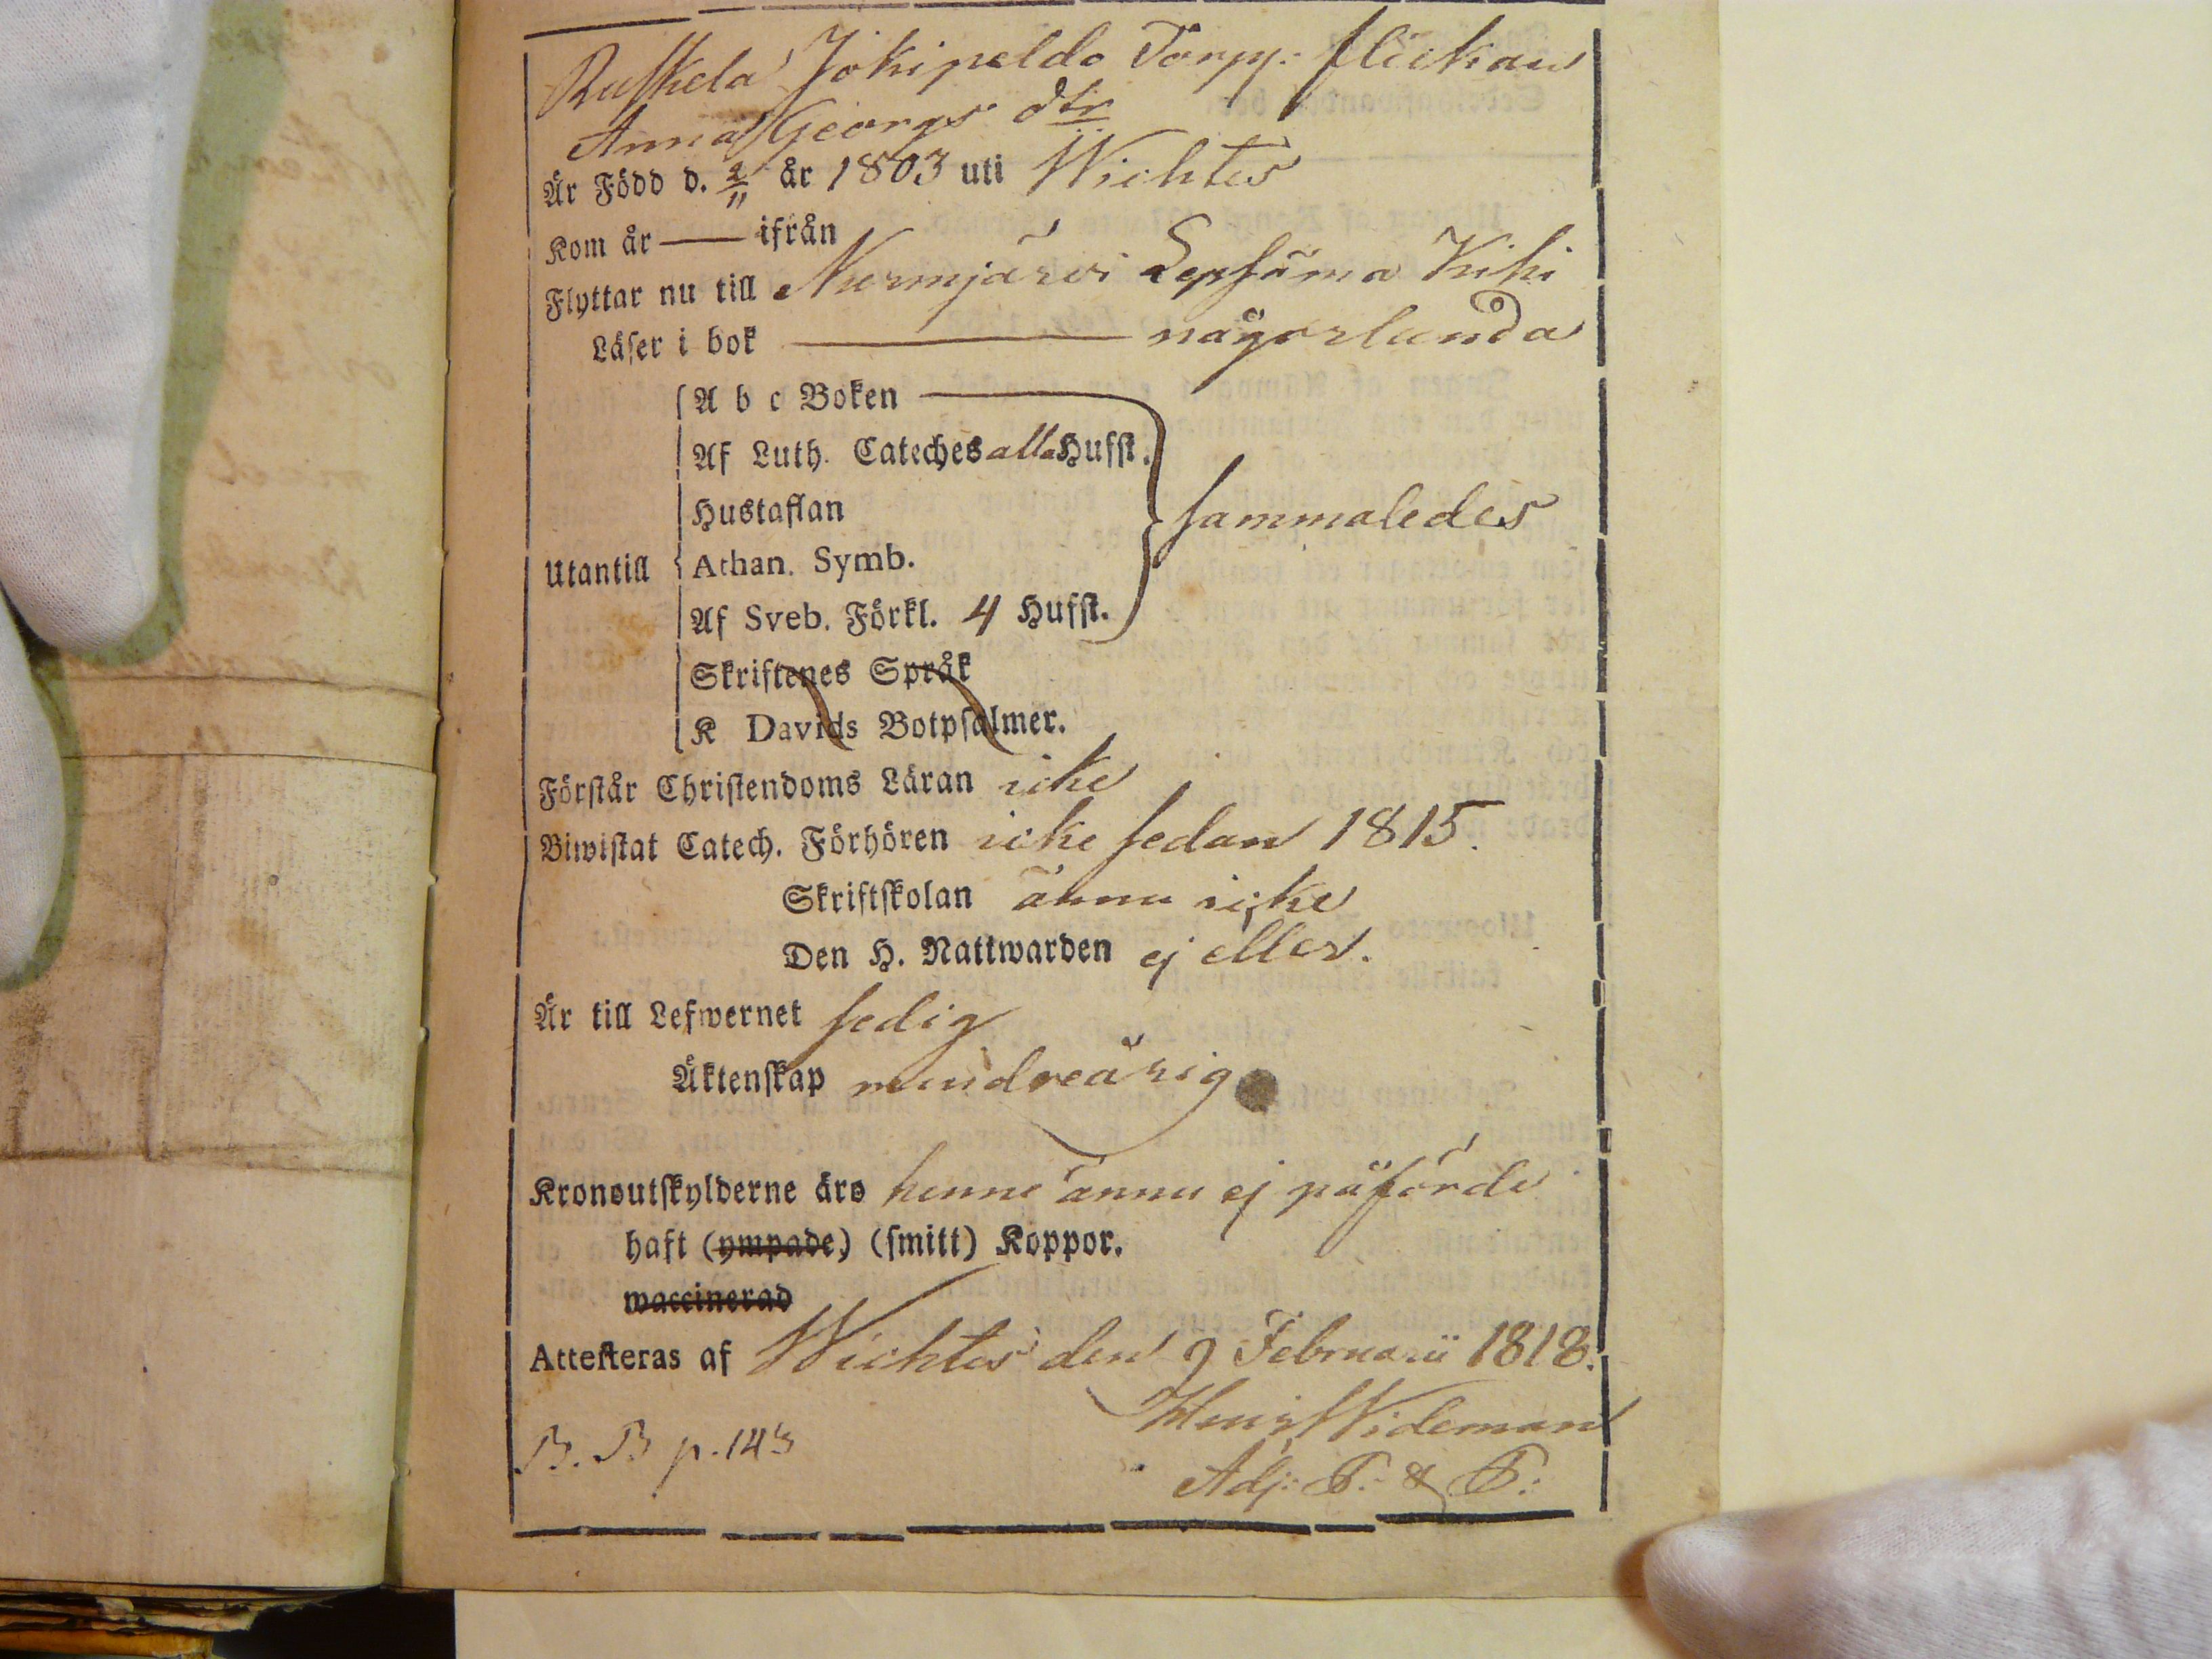 Ruskela Jokipeldo Torpp: flickan
Anna Georgs dtr
Är Född d. 2/11 år 1803 uti Wichtis
Kom år — ifrån
Flyttar nu till Nurmjärvi Lepsäma Kihi
Läser i bok — någorlunda
A b c Boken
Af Luth. Cateches alla Hufst.
Hustaflan
sammaledes
Utantill
Athan. Symb.
Af Sveb. Förkl. 4 Hufst.
Skriftenes Språk
K Davids Botpsalmer.
Förstår Christendoms Läran icke
Biwistat Catech. Förhören icke sedan 1815.
Skriftskolan ännu icke
Den H. Nattwarden ej eller.
Är till Lefwernet sedig
Äktenskap mindreårig
Kronoutskylderne äro henne ännu ej påförde
haft (ympade,) (smitt) Koppor.
waccinerad
Attesteras af Wichtis den 9 Februarii 1818.
Wideman
B. B p. 143
Adj: P. & P.